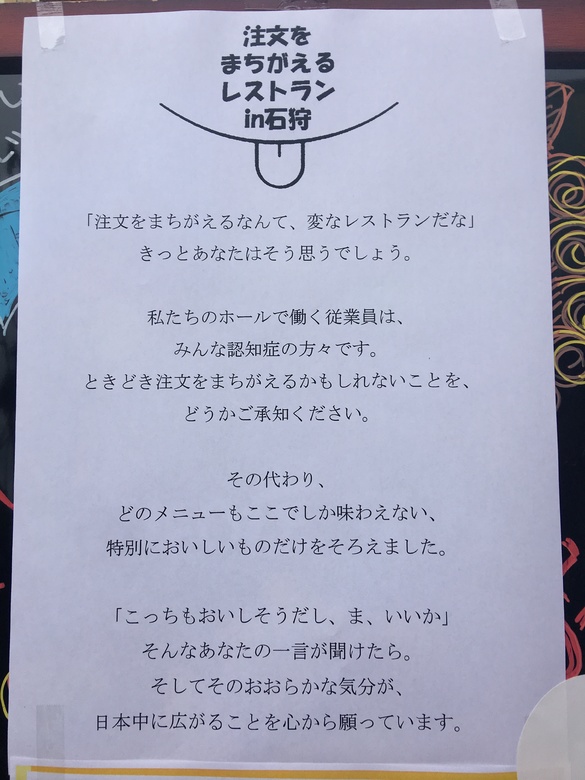 注文を
まちがえる
レストラン
in石狩
「注文をまちがえるなんて、変なレストランだな」
きっとあなたはそう思うでしょう。
私たちのホールで働く従業員は、
みんな認知症の方々です。
ときどき注文をまちがえるかもしれないことを、
どうかご承知ください。
その代わり、
どのメニューもここでしか味わえない、
特別においしいものだけをそろえました。
「こっちもおいしそうだし、ま、いいか」
そんなあなたの一言が聞けたら。
そしてそのおおらかな気分が、
日本中に広がることを心から願っています。